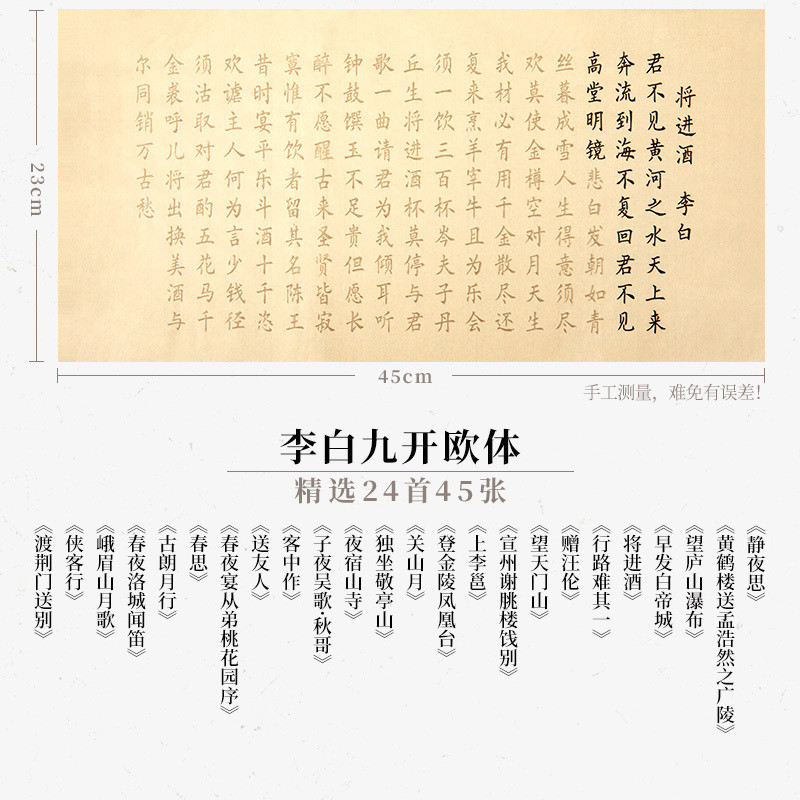 将进酒 李白
君不见黄河之水天上来
奔流到海不复回君不见
高堂明镜悲白发朝如青
丝暮成雪人生得意须尽
欢莫使金樽空对月天生
我材必有用千金散尽还
复来烹羊宰牛且为乐会
须一饮三百杯岑夫子丹
丘生将进酒杯莫停与君
歌一曲请君为我倾耳听
钟鼓馔玉不足贵但愿长
醉不愿醒古来圣贤皆寂
寞惟有饮者留其名陈王
昔时宴平乐斗酒十千恣
欢谑主人何为言少钱径
须沽取对君酌五花马千
金裘呼儿将出换美酒与
尔同销万古愁
23cm
45cm
手工测量，难免有误差!
李白九开欧体
精选24首45张
《静夜思》
《黄鹤楼送孟浩然之广陵》
《望庐山瀑布》
《早发白帝城》
《将进酒》
《行路难其一》
《赠汪伦》
《望天门山》
《宣州谢朓楼饯别》
《上李邕》
《登金陵凤凰台》
《关山月》
《独坐敬亭山》
《夜宿山寺》
《子夜吴歌·秋哥》
《客中作》
《送友人》
《春夜宴从弟桃花园序》
《春思》
《古朗月行》
《春夜洛城闻笛》
《峨眉山月歌》
《侠客行》
《渡荆门送别》